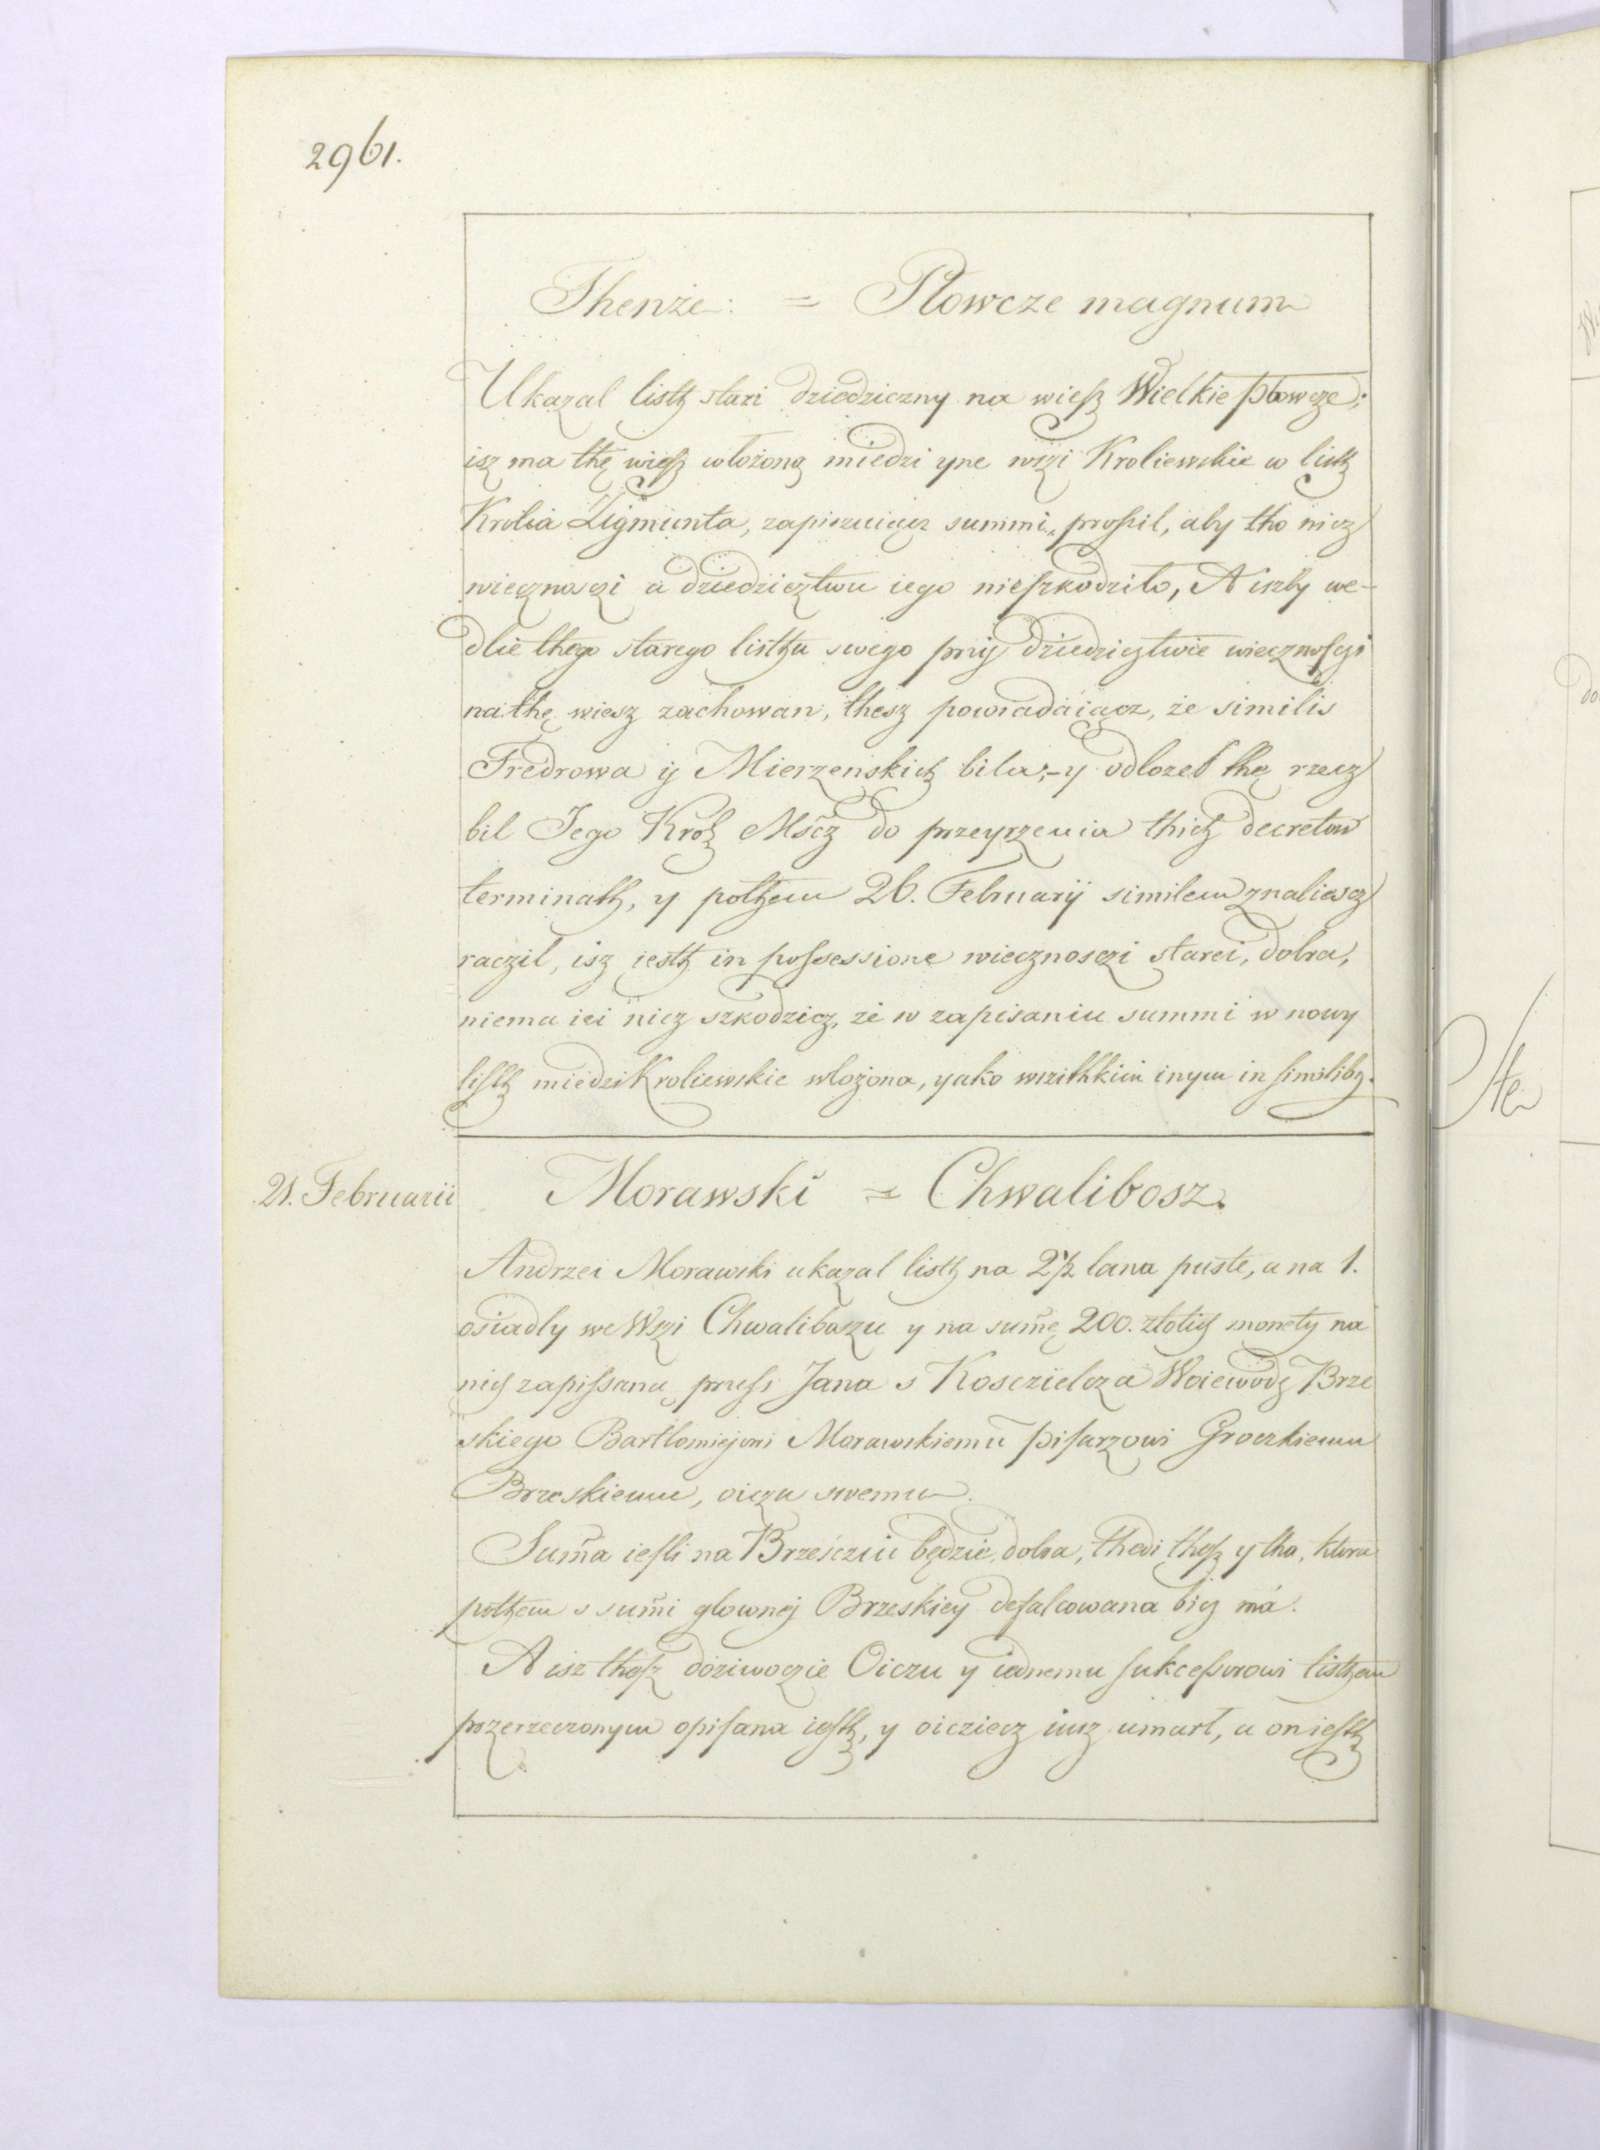 2961.
Thenże: = Płowcze magnum
Ukazal listh stari dziedziczny na wiesz Wielkie Płowcze;
isz ma thę wiesz włożoną miedzi yne wszi Kroliewskie w listh
Krolia Zigmunta, zapiszuiącz summi, prosził, aby tho nicz
wiecznosczi a dziedzicztwu iego nieszkodziło, A iszby we-
dlie thego starego listhu swego przÿ dziedzicztwie wiecznosczi
na thę wiesz zachowan, thesz powiadaiącz, że similis
Fredrowa ÿ Mierzenskich bila; – y odłozel thę rzecz
bil Jego Krol Mścz do przeyrzenia thich decretow
terminath, y pothem 26. Februarÿ similem znaliescz
raczil, isz iesth in possessione wiecznosczi starei, dobra,
niema iei nicz szkodzicz, że w zapisaniu summi w nowy
listh miedzi Kroliewskie włożona, yako wszithkim inym in similibq.
21. Februarii
Morawski = Chwalibosz.
Andrzei Morawski ukazal listh na 2½ lana puste, a na 1.
osiadly we Wszi Chwaliboszu y na sum̃ę 200. złotich monety na
nich zapissaną przess Jana s Kosczielcza Woiewodę Brze
skiego Bartlomiejowi Morawskiemu pisarzowi Groczkiemu
Brzeskiemu, oiczu swemu.
Sum̃a iesli na Brzescziu będzie dobra, thedi thesz y tha, ktora
pothem s sum̃i glownej Brzeskiey defalcowana bicz ma.
A isz thesz doziwoczie Oiczu y iednemu sukcessorowi listhem
przerzeczonym opisana iesth, y oicziecz iusz umarł, a on iesth